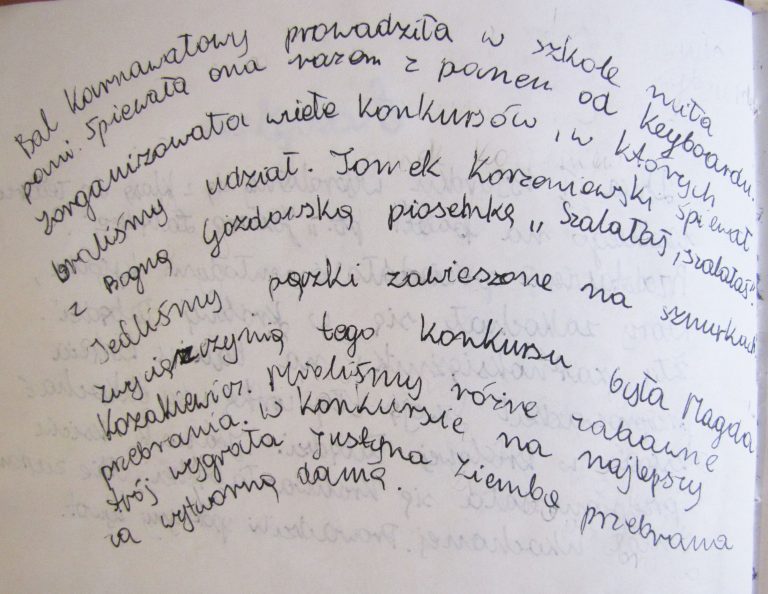 Bal Karnawałowy prowadziła w szkole miła
pani. Śpiewała ona razem z panem od keyboardu.
Zorganizowała wiele konkursów, w których
braliśmy udział. Tomek Korzeniewski śpiewał
z Bogną Gozdowską piosenkę „Szalałaś, szalałaś".
Jedliśmy pączki zawieszone na sznurkach
zwyciężczynią tego konkursu była Magda
Kozakiewicz. Mieliśmy różne zabawne
przebrania. w konkursie na najlepszy
strój wygrała Justyna Ziemba przebrana
za wytworną damę.